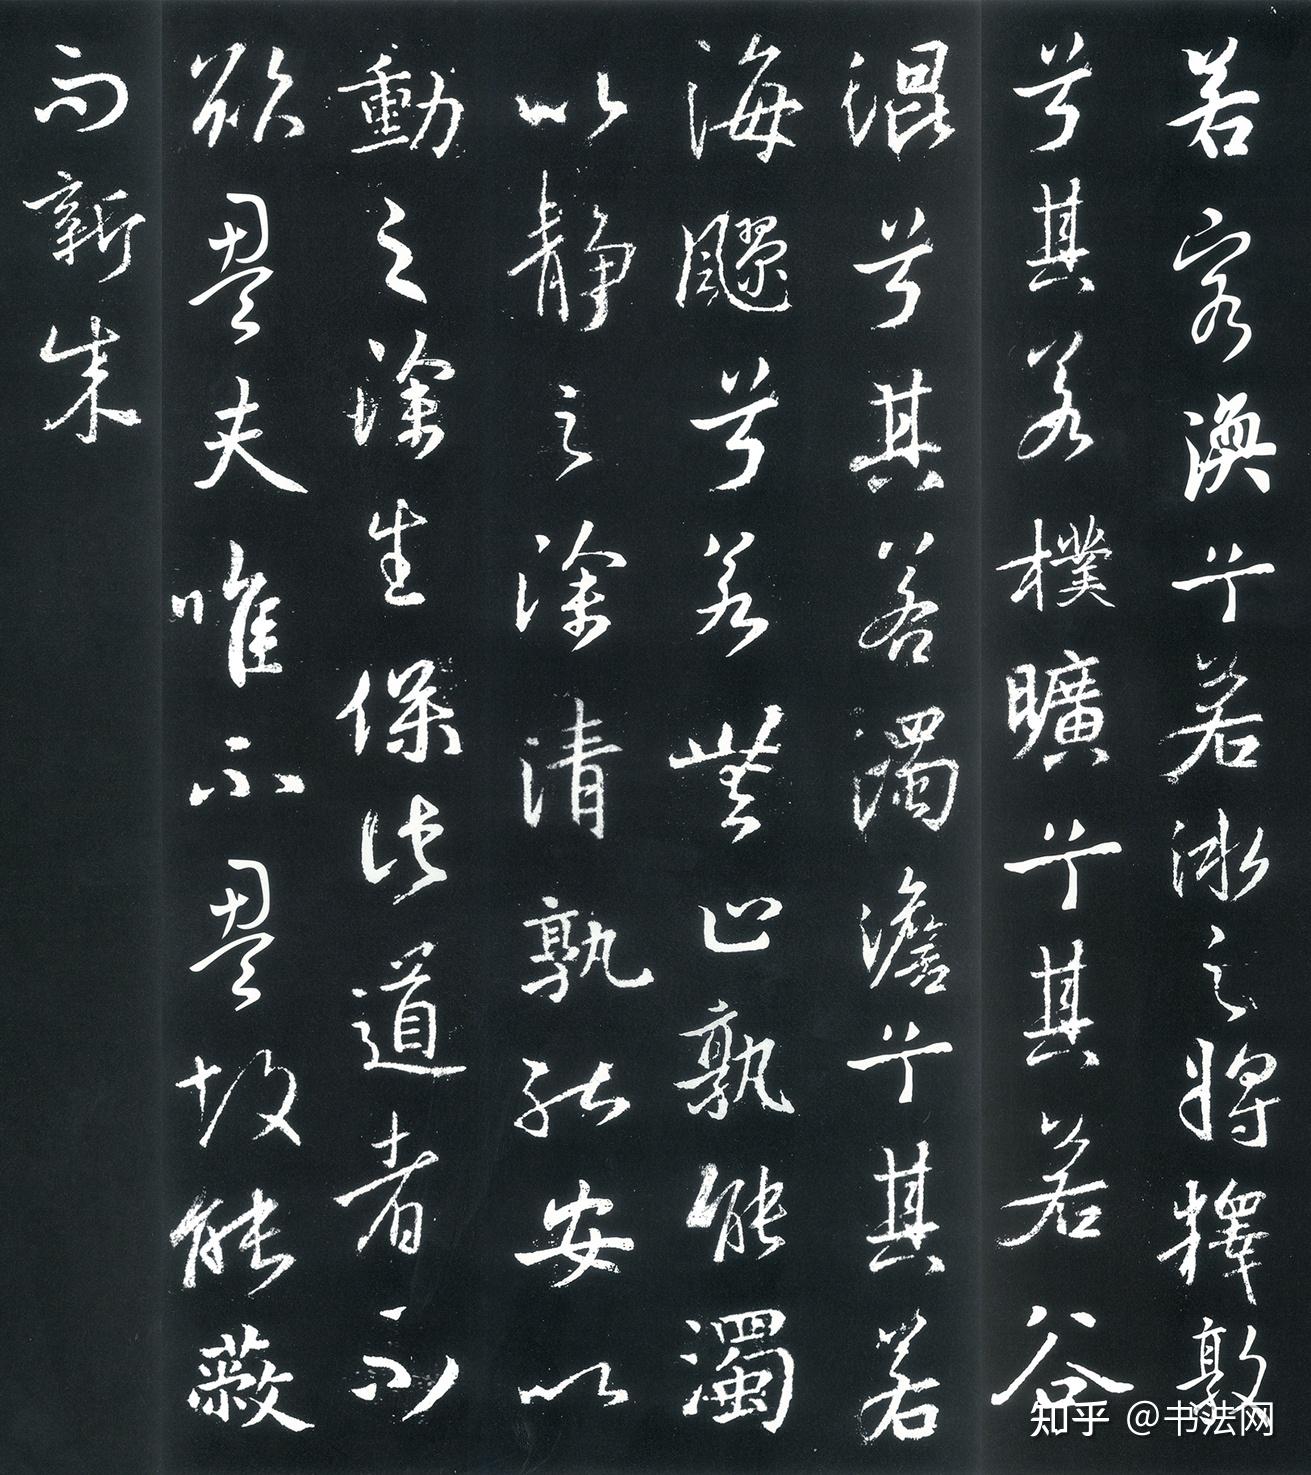 若客渙兮若冰之將釋敦
兮其若樸曠兮其若谷
混兮其若濁澹兮其若
海飂兮若無止孰能濁
以靜之徐清孰能安以
動之徐生保此道者不
欲盈夫唯不盈故能蔽
而新成
知乎 @书法网